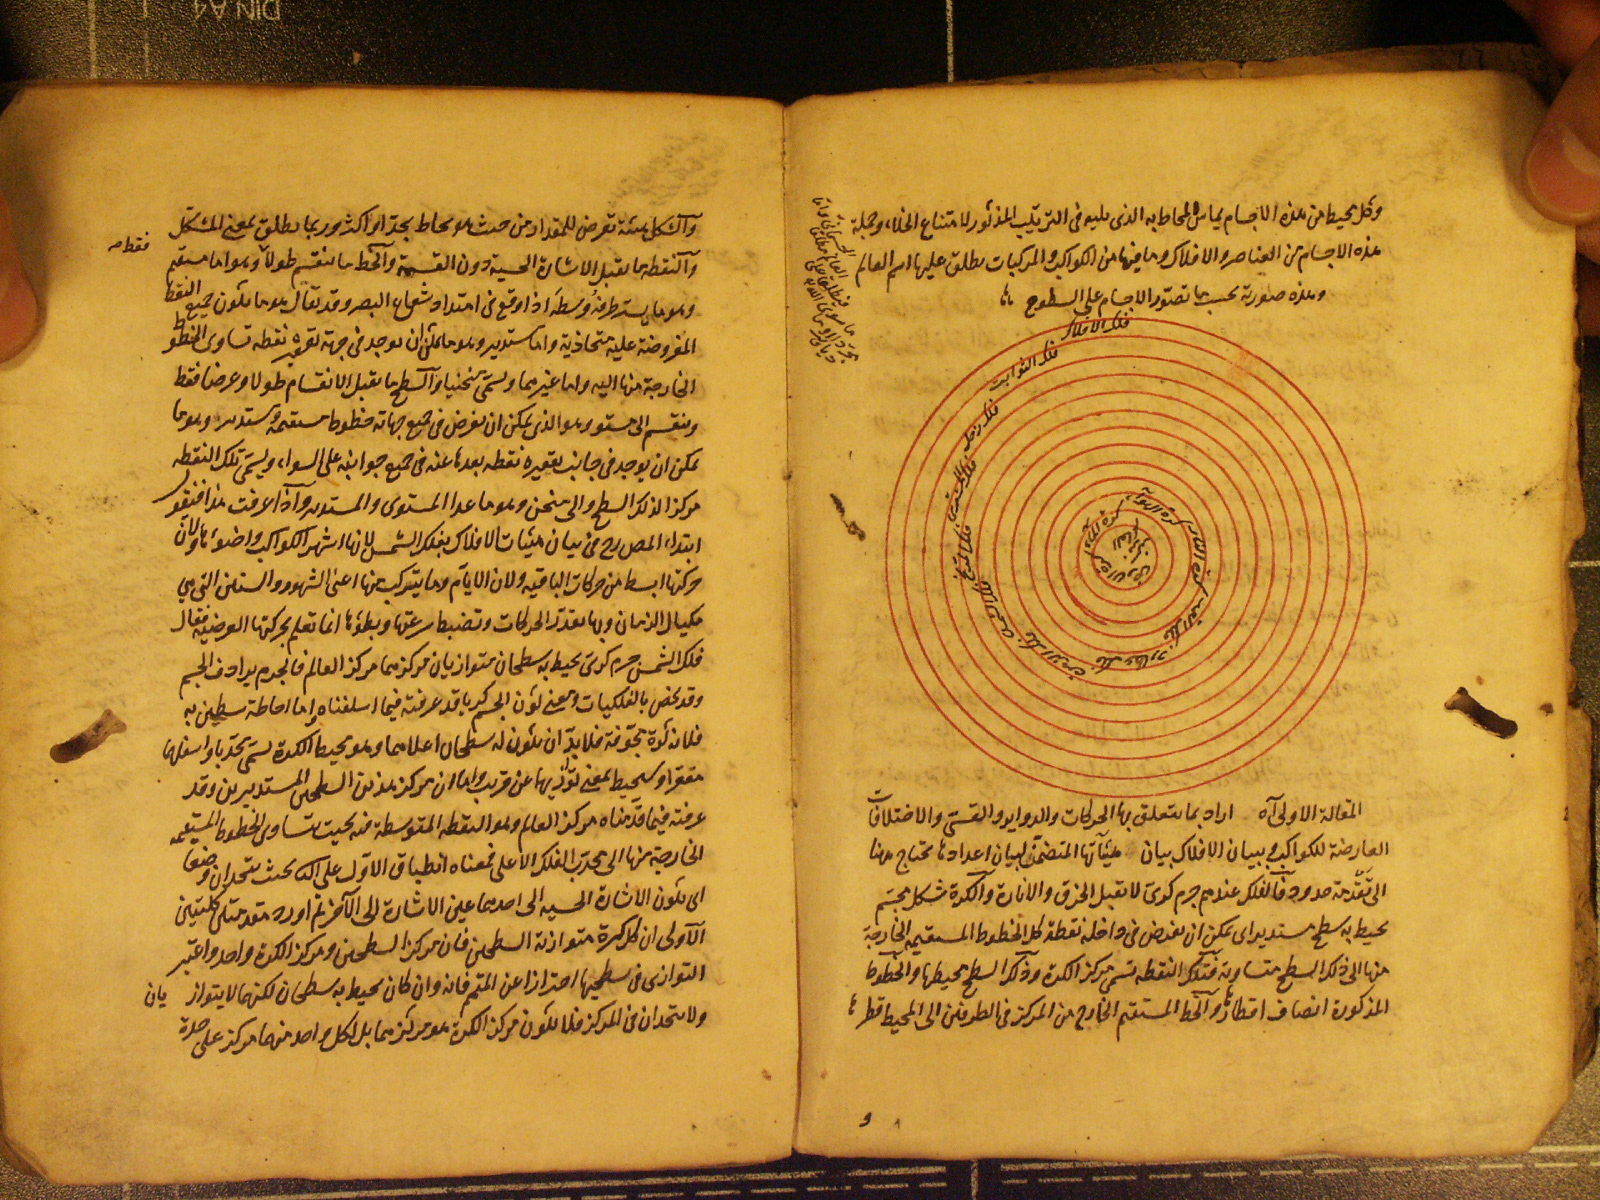 وكل محيط من هذه الاجسام يماس المحاط به الذى يليه فى الترتيب المذكور لامتناع الخلاء وجملة
هذه الاجسام من العناصر والافلاك وما فيها من الكواكب والمركبات يطلق عليها اسم العالم
وهذه صورته بحسب ما تصور الاجسام على السطوح
فلك الافلاك
فلك الثوابت
فلك زحل
فلك المشترى
فلك المريخ
فلك الشمس
فلك الزهرة
فلك عطارد
فلك القمر
كرة النار
كرة الهواء
كرة الماء
كرة الارض
مركز العالم
المقالة الاولى آه اراد بما يتعلق بها الحركات والدواير والقسى والاختلافات
العارضة للكواكب وببيان الافلاك بيان هيئاتها المتضمن لبيان اعدادها تحتاج هنا
الى تقدمة حدود فالفلك عندهم جرم كرى لا يقبل الخرق والانارة والكرة شكل مجسم
يحيط به سطح مستدير اى يمكن ان يفرض فى داخله نقطة كل الخطوط المستقيمة الخارجة
منها الى ذلك السطح متساوية فتلك النقطه تسمى مركز الكرة وذلك السطح محيطها والخطوط
المذكورة انصاف اقطارها والخط المستقيم الخارج من المركز فى الطرفين الى المحيط قطرها
والشكل هيئة تعرض للمقدار من حيث هو محاط بحد او اكثر وربما يطلق بمعنى المشكل
والنقطه ما يقبل الاشارة الحسية دون القسمة والخط ما ينقسم طولا وهو اما مستقيم
فقط صه
وهو ما يستر طرفه وسطه اذا وقع فى امتداد شعاع البصر وقد يقال هو ما يكون جميع النقط
المفروضة عليه متحاذية واما مستدير وهو ما يمكن ان يوجد فى جهة تقعيره نقطه تساوى الخطوط
الخارجة منها اليه واما غيرهما ويسمى منحنيا والسطح ما يقبل الانقسام طولا وعرضا فقط
وينقسم الى مستو وهو الذى يمكن ان يفرض فى جميع جهاته خطوط مستقيمة ومستدير وهو ما
يمكن ان يوجد فى جانب تقعيره نقطه بعدها عنه فى جميع جوانبه على السواء ويسمى تلك النقطه
مركزا لذلك السطح والى منحن وهو ما عدا المستوى والمستدير واذا عرفت هذا فنقول
ابتداء المصر رح فى بيان هيئات الافلاك بفلك الشمس لانها اشهر الكواكب واضوئها ولان
حركتها ابسط من حركات الباقيه ولان الايام وما يتركب منها اعنى الشهور والسنين التى هى
مكيال الزمان وبها تقدر الحركات وتضبط سرعتها وبطؤها انما تعلم بحركتها العرضيه فقال
فلك الشمس جرم كرى يحيط به سطحان متوازيان مركزهما مركز العالم فالجرم يرادف الجسم
وقد يخص بالفلكيات ومعنى كون الجسم كريا قد عرفته فيما اسلفناه واما احاطة سطحين به
فلانه كرة مجوفة فلا بد ان يكون له سطحان اعلاهما وهو محيط الكرة يسمى محدبا واسفلهما
مقعرا
عرفته فيما قدمناه مركز العالم وهو النقطه المتوسطة فيه بحيث تساوى الخطوط المستقيمه
الخارجة منها الى محدب الفلك الاعلى فمعناه انطباق الاول على الثانى بحيث يتحدان وضعا
اى يكون الاشارة الحسيه الى احدهما عين الاشارة الى الآخر ثم اورد مقدمتين كليتين
الاولى ان كل كرة متوازية السطحين فان مركز السطحين ومركز الكرة واحد واعتبر
التوازى فى سطحيها احترازا عن المتمم فانه وان كان يحيط به سطحان لكنهما لا يتوازيان
ولا يتحدان فى المركز فلا يكون مركز الكرة هو مركزهما بل لكل واحد منهما مركز على حدة